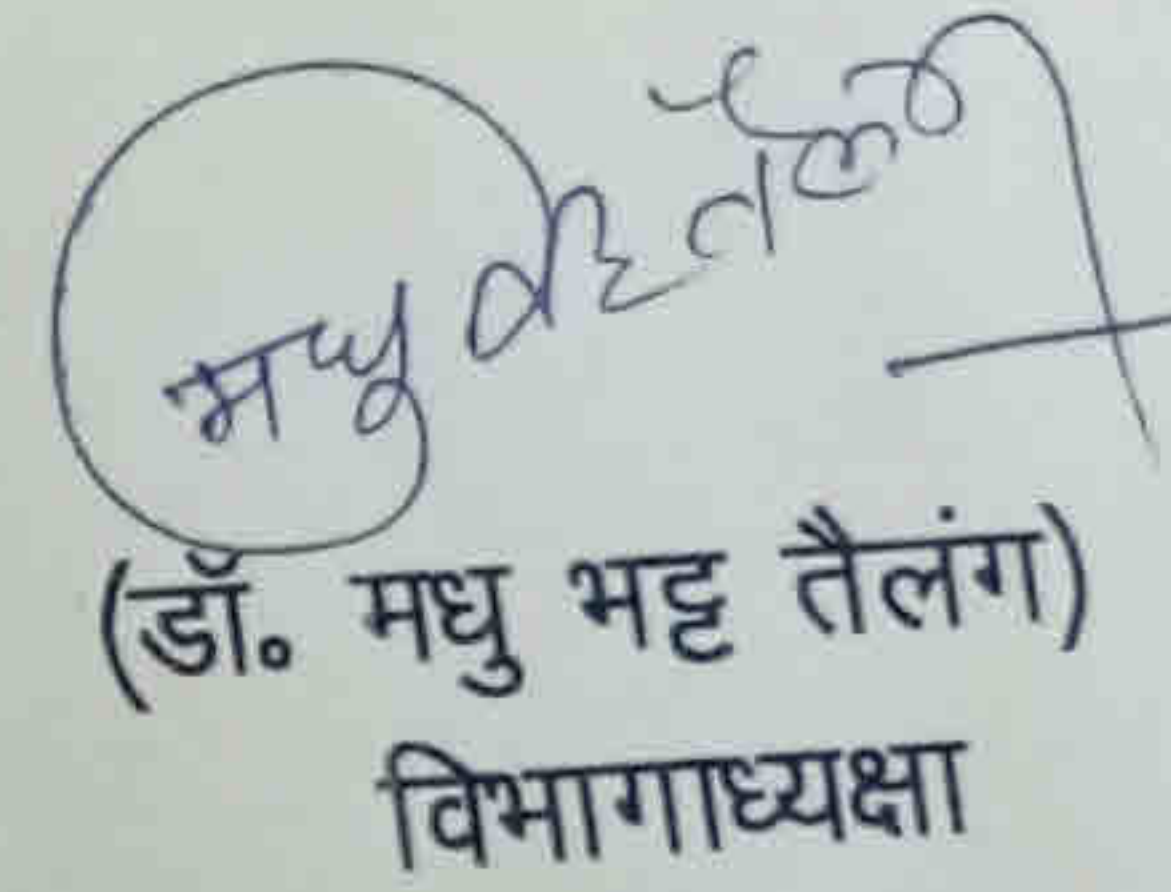 मधु भट्ट तैलंग
(डॉ. मधु भट्ट तैलंग)
विभागाध्यक्षा